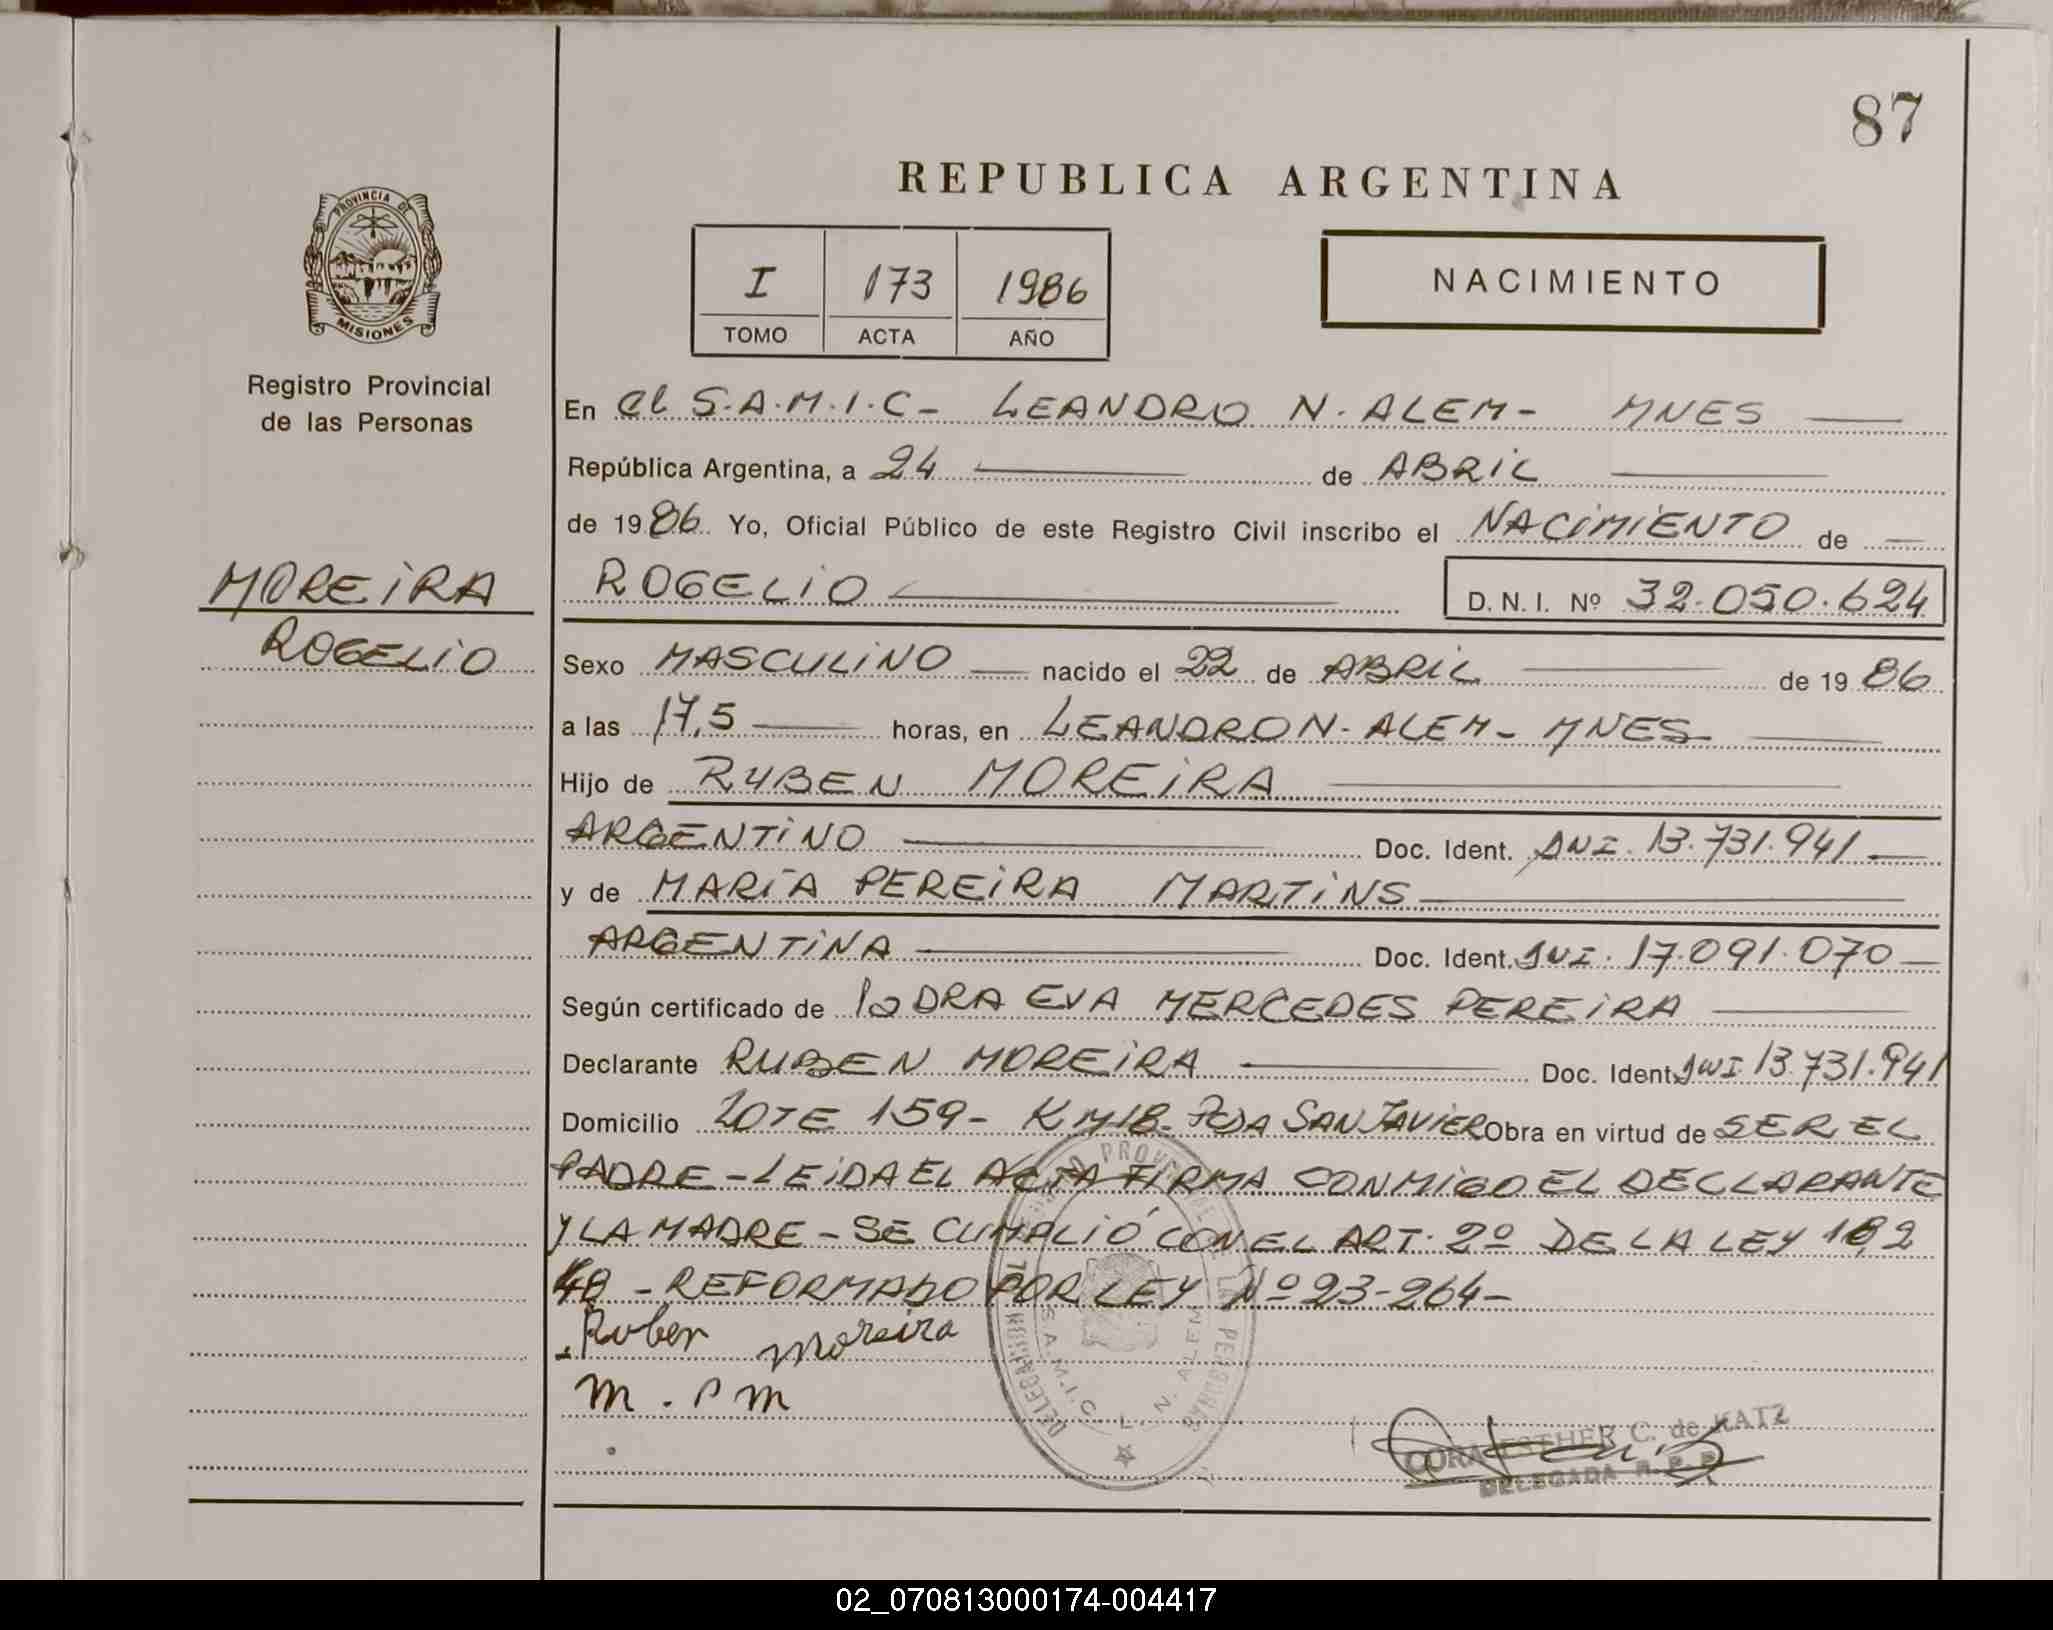 87
REPUBLICA ARGENTINA
PROVINCIA DE
MISIONES
Registro Provincial
de las Personas
I 173 1986
TOMO ACTA AÑO
NACIMIENTO
MOREIRA
ROGELIO
En el S.A.M.I.C- LEANDRO N. ALEM- MNES
República Argentina, a 24 de ABRIL
de 1986 Yo, Oficial Público de este Registro Civil inscribo el NACIMIENTO de
ROGELIO D. N. I. Nº 32.050.624
Sexo MASCULINO nacido el 22 de ABRIL de 1986
a las 17,5 horas, en LEANDRO N. ALEM- MNES
Hijo de RUBEN MOREIRA
ARGENTINO Doc. Ident. DNI. 13.731.941
y de MARIA PEREIRA MARTINS
ARGENTINA Doc. Ident. DNI. 17.091.070
Según certificado de la DRA EVA MERCEDES PEREIRA
Declarante RUBEN MOREIRA Doc. Ident. DNI 13.731.941
Domicilio LOTE 159- KM18- SAN JAVIER Obra en virtud de SER EL
PADRE-LEIDA EL ACTA FIRMA CONMIGO EL DECLARANTE
Y LA MADRE-SE CUMPLIÓ CON EL ART. 2º DE LA LEY 18,2
48 -REFORMADO POR LEY Nº 23-264-
Ruben Moreira
M. P M
S.A.M.I.C. L. N. ALEM
CORA ESTHER C. de KATZ
DELEGADA R. P. P.
02_070813000174-004417